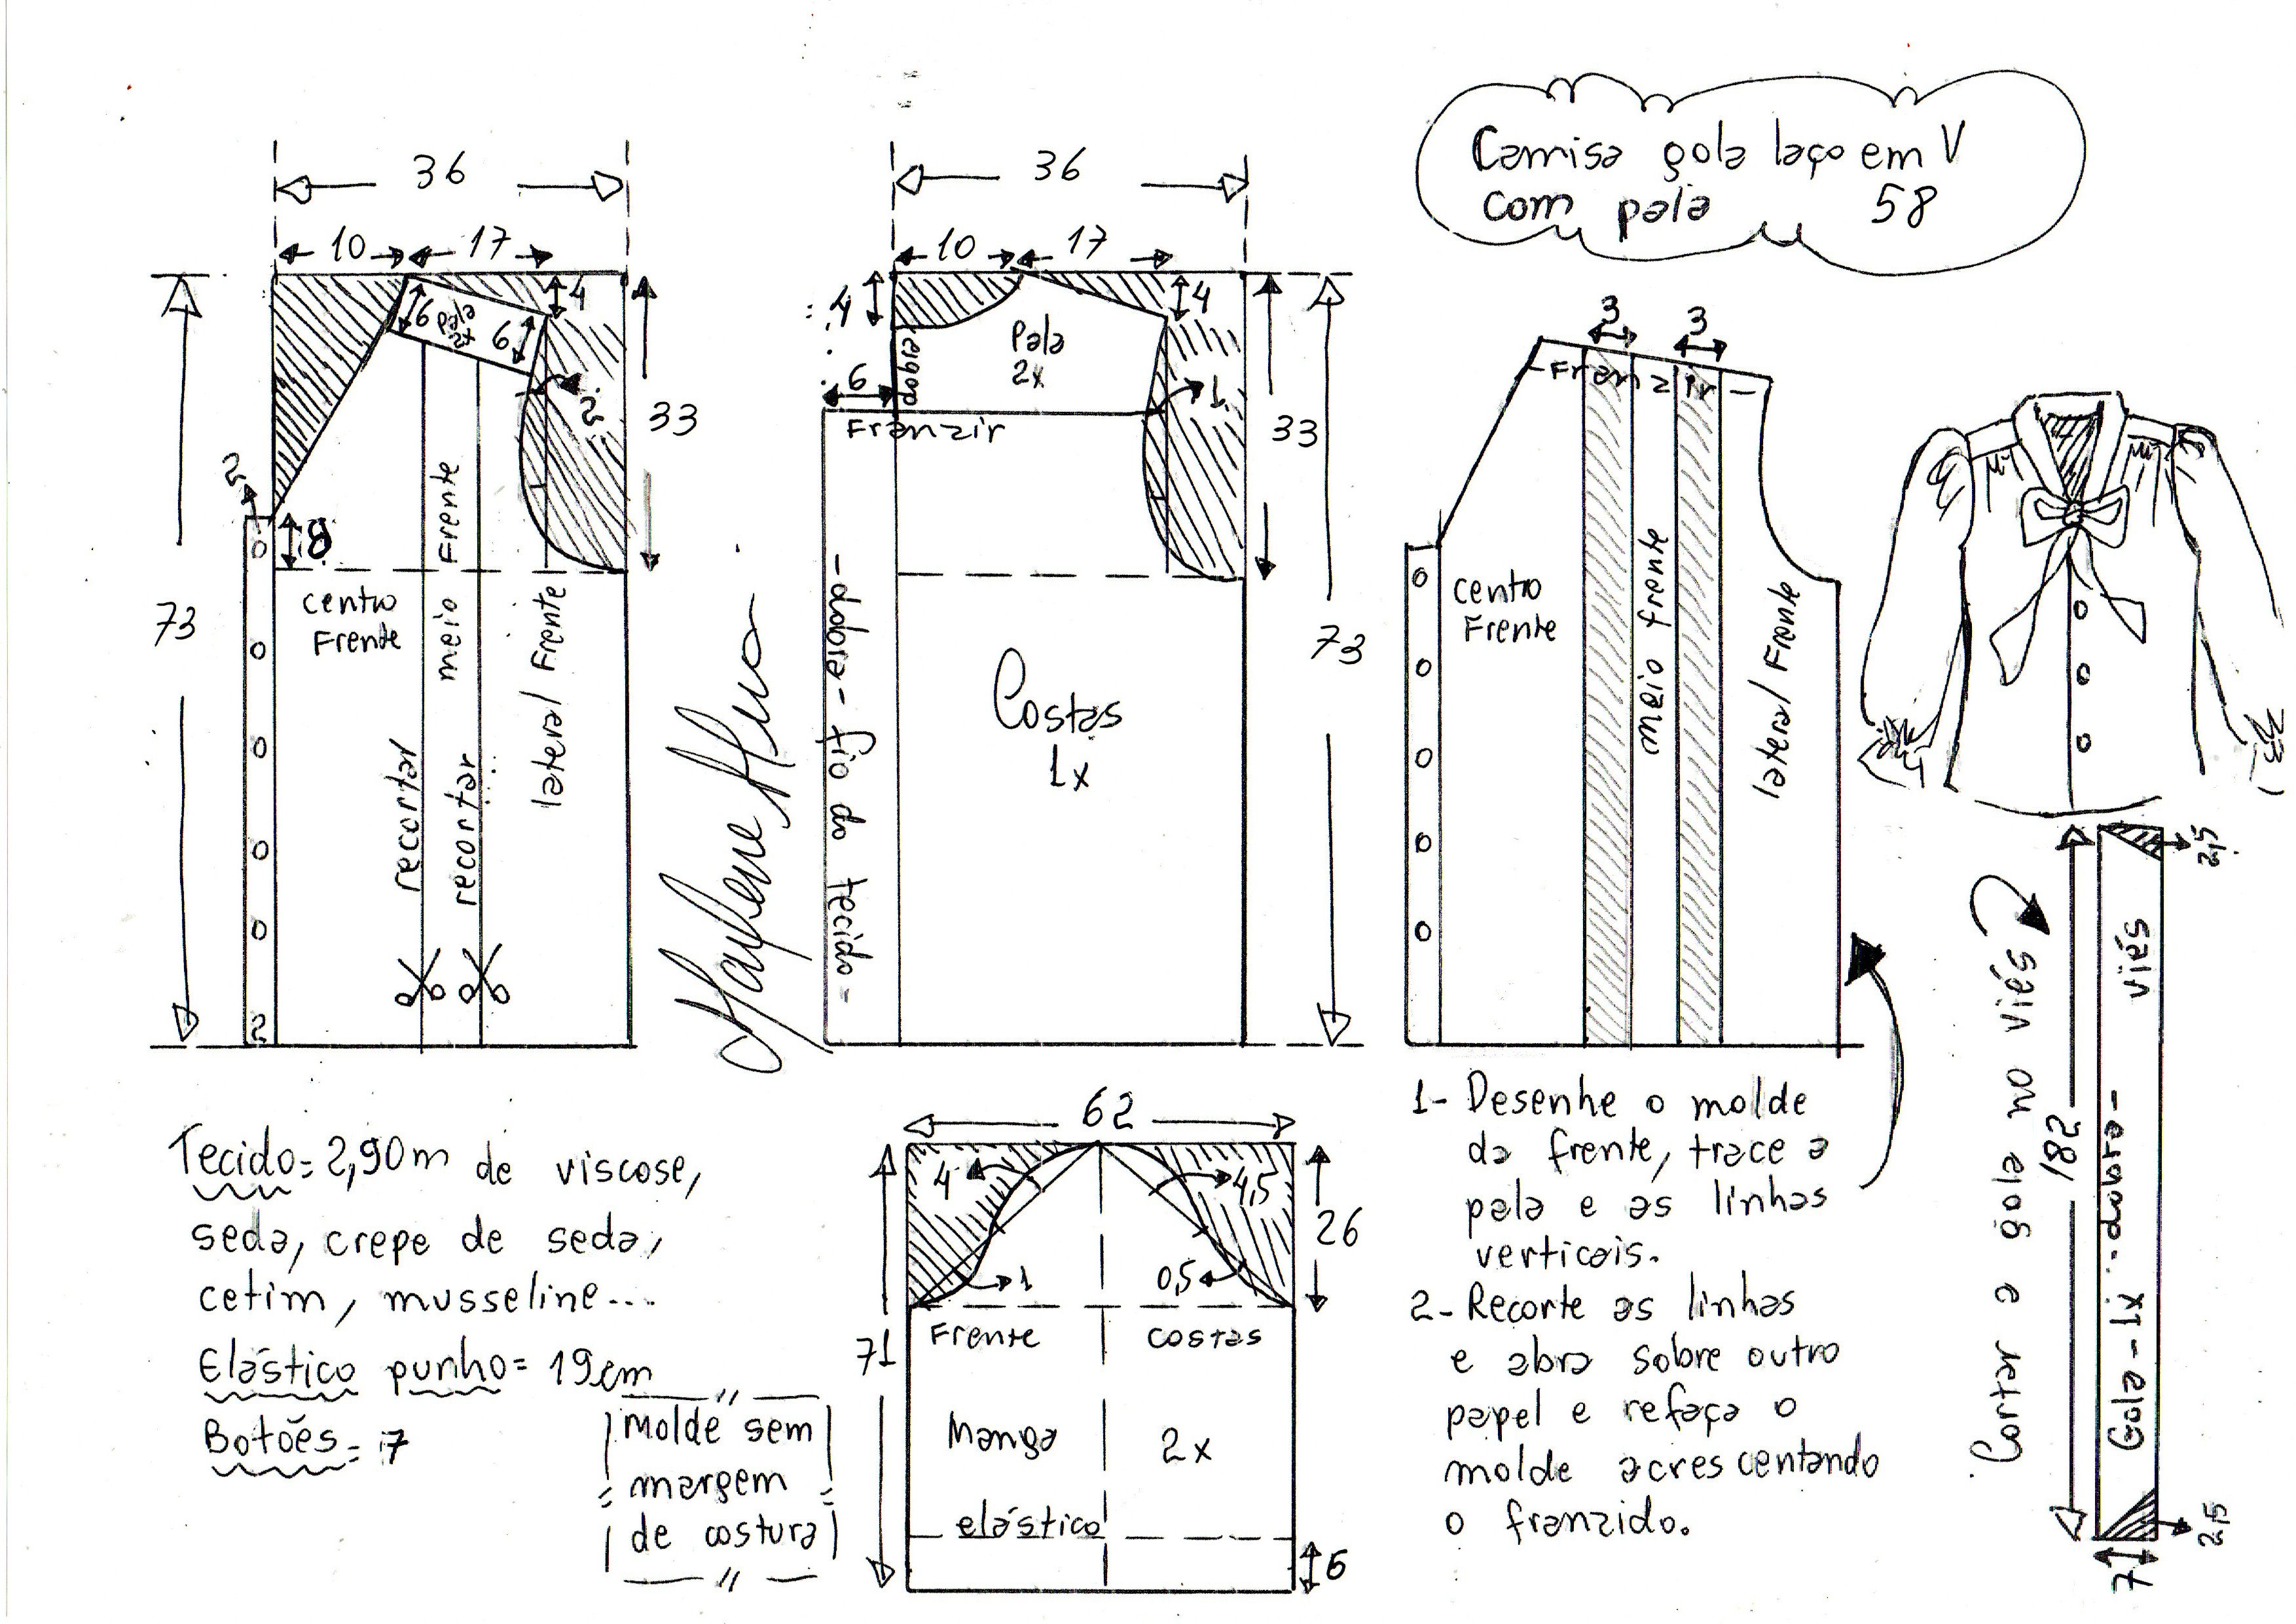 Camisa gola laço em V
com pala 58
36
10 17
4
6 pala 2x 6
2
33
2
8
73
centro
Frente
meio Frente
lateral Frente
recortar
recortar
2
Marlene Mukai
36
10 17
4
4
Pala
2x
dobra
6
1
Franzir
33
73
-dobra- fio do tecido-
Costas
1x
3 3
-Franzir-
centro
Frente
meio frente
lateral Frente
Tecido= 2,90m de viscose,
seda, crepe de seda,
cetim, musseline...
Elástico punho= 19cm
Botões= 7
molde sem
margem
de costura
62
4
4,5
26
1
0,5
Frente
costas
71
Manga
2x
elástico
6
1- Desenhe o molde
da frente, trace a
pala e as linhas
verticais.
2- Recorte as linhas
e abra sobre outro
papel e refaça o
molde acrescentando
o franzido.
Cortar a gola no viés
182
2,5
Gola - 1x -dobra- viés
2,5
7